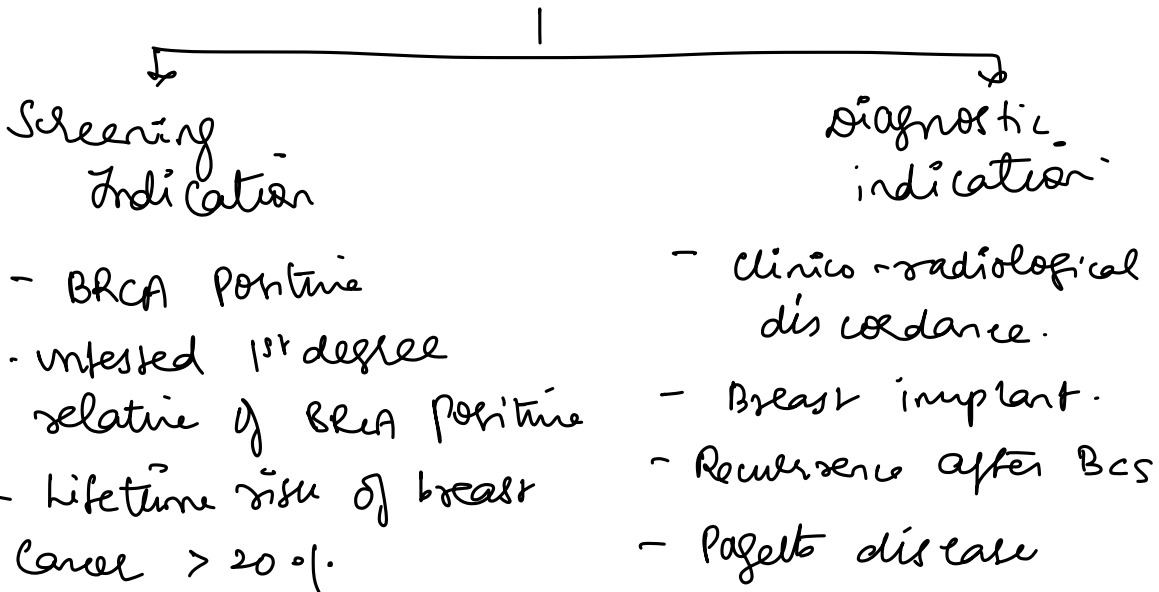 Screening
Indication
- BRCA Positive
- untested 1st degree
relative of BRCA Positive
- Lifetime risk of breast
Cancer > 20 %.
Diagnostic
indication
- Clinico-radiological
discordance.
- Breast implant.
- Recurrence after BCS
- Pagets disease